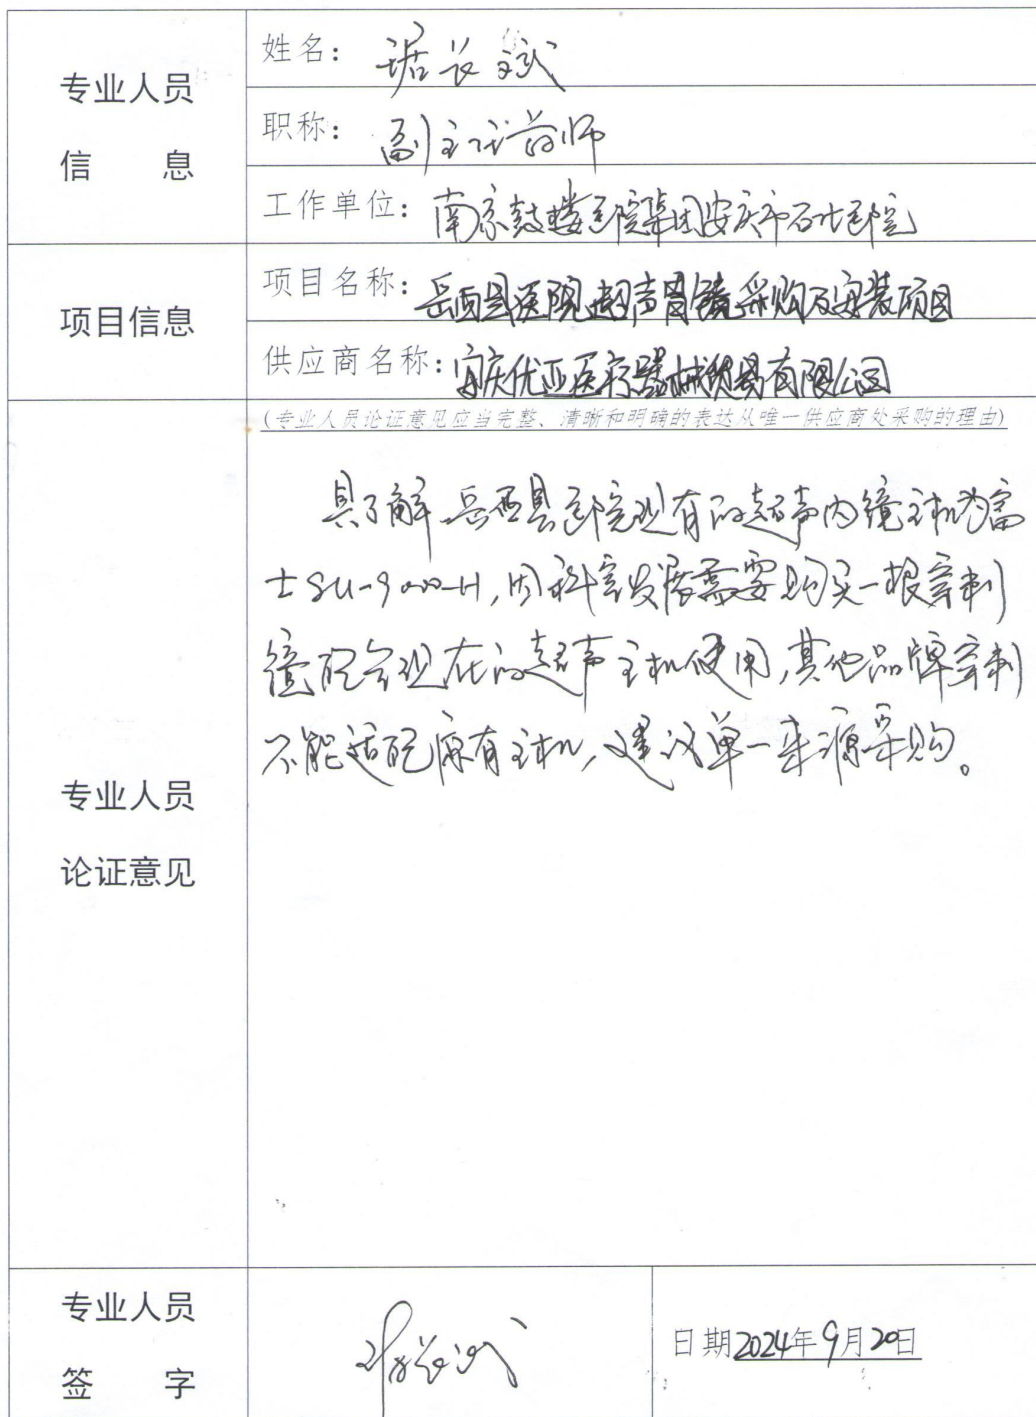 专业人员
信 息
姓名：琚长斌
职称：副主任药师
工作单位：南京鼓楼医院集团安庆市石化医院
项目信息
项目名称：岳西县医院超声胃镜采购及安装项目
供应商名称：安庆优亚医疗器械贸易有限公司
专业人员
论证意见
(专业人员论证意见应当完整、清晰和明确的表达从唯一供应商处采购的理由)
具了解岳西县医院现有的超声内镜主机为富
士SU-9000-H，因科室发展需要购买一根穿刺
镜配合现在的超声主机使用，其他品牌穿刺
不能适配原有主机，建议单一来源采购。
专业人员
签 字
日期2024年9月20日